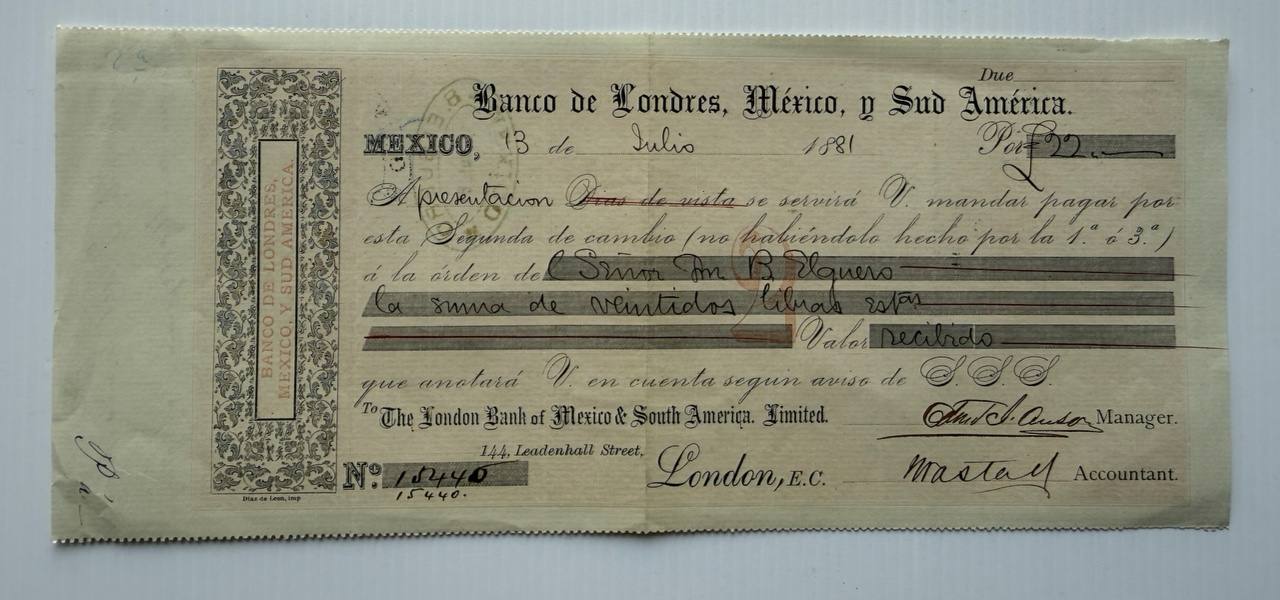 Due
Banco de Londres, México, y Sud América.
MEXICO, 13 de Julio 1881 Por £22.—
A presentacion Dias de vista se servirá V. mandar pagar por
esta Segunda de cambio (no habiéndolo hecho por la 1.ª ó 3.ª)
á la órden del Señor Dn B. Elguero
la suma de veintidos libras estas
Valor recibido
que anotará V. en cuenta segun aviso de S. S. S.
To The London Bank of Mexico & South America. Limited.
Manager.
144, Leadenhall Street,
Nº: 15440 London, E.C. Accountant.
15440.
Diaz de Leon, imp
BANCO DE LONDRES,
MEXICO, Y SUD AMERICA.
2